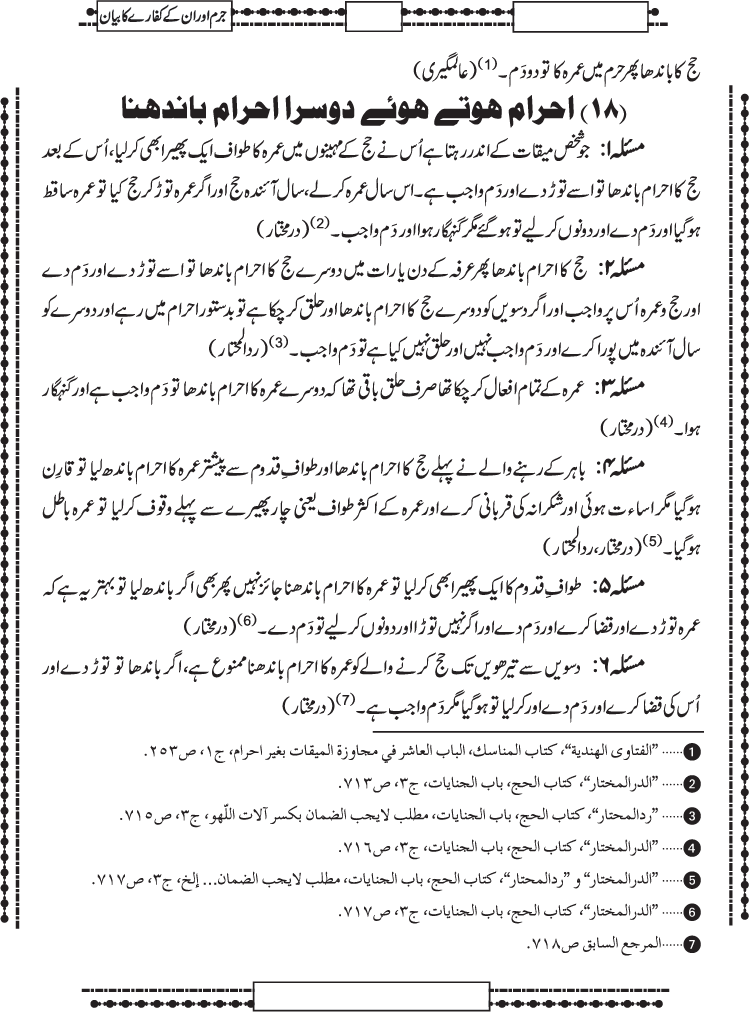 جرم اور ان کے کفارے کا بیان
حج کا باندھا پھر حرم میں عمرہ کا تو دو دَم۔(1) (عالمگیری)
(۱۸) احرام ہوتے ہوئے دوسرا احرام باندھنا
مسئلہ ۱: جو شخص میقات کے اندر رہتا ہے اُس نے حج کے مہینوں میں عمرہ کا طواف ایک پھیرا بھی کرلیا، اُس کے بعد
حج کا احرام باندھا تو اسے توڑ دے اور دَم واجب ہے۔ اس سال عمرہ کرلے، سال آئندہ حج اور اگر عمرہ توڑ کر حج کیا تو عمرہ ساقط
ہوگیا اور دَم دے اور دونوں کرلیے تو ہوگئے مگر گنہگار ہوا اور دَم واجب۔(2) (درمختار)
مسئلہ ۲: حج کا احرام باندھا پھر عرفہ کے دن یا رات میں دوسرے حج کا احرام باندھا تو اسے توڑ دے اور دَم دے
اور حج و عمرہ اُس پر واجب اور اگر دسویں کو دوسرے حج کا احرام باندھا اور حلق کر چکا ہے تو بدستور احرام میں رہے اور دوسرے کو
سال آئندہ میں پورا کرے اور دَم واجب نہیں اور حلق نہیں کیا ہے تو دَم واجب۔(3) (ردالمحتار)
مسئلہ ۳: عمرہ کے تمام افعال کر چکا تھا صرف حلق باقی تھا کہ دوسرے عمرہ کا احرام باندھا تو دَم واجب ہے اور گنہگار
ہوا۔(4) (درمختار)
مسئلہ ۴: باہر کے رہنے والے نے پہلے حج کا احرام باندھا اور طوافِ قدوم سے پیشتر عمرہ کا احرام باندھ لیا تو قارِن
ہوگیا مگر اساءت ہوئی اور شکرانہ کی قربانی کرے اور عمرہ کے اکثر طواف یعنی چار پھیرے سے پہلے وقوف کرلیا تو عمرہ باطل
ہوگیا۔(5) (درمختار، ردالمحتار)
مسئلہ ۵: طوافِ قدوم کا ایک پھیرا بھی کرلیا تو عمرہ کا احرام باندھنا جائز نہیں پھر بھی اگر باندھ لیا تو بہتر یہ ہے کہ
عمرہ توڑ دے اور قضا کرے اور دَم دے اور اگر نہیں توڑا اور دونوں کرلیے تو دَم دے۔(6) (درمختار)
مسئلہ ۶: دسویں سے تیرھویں تک حج کرنے والے کو عمرہ کا احرام باندھنا ممنوع ہے، اگر باندھا تو توڑ دے اور
اُس کی قضا کرے اور دَم دے اور کرلیا تو ہوگیا مگر دَم واجب ہے۔(7) (درمختار)
1 ...... ”الفتاوی الهندية“، كتاب المناسك، الباب العاشر في مجاوزة الميقات بغير احرام، ج۱، ص۲۵۳.
2 ...... ”الدرالمختار“، كتاب الحج، باب الجنايات، ج۳، ص۷۱۳.
3 ...... ”ردالمحتار“، كتاب الحج، باب الجنايات، مطلب لايجب الضمان بكسر آلات اللّهو، ج۳، ص۷۱۵.
4 ...... ”الدرالمختار“، كتاب الحج، باب الجنايات، ج۳، ص۷۱۶.
5 ...... ”الدرالمختار“ و ”ردالمحتار“، كتاب الحج، باب الجنايات، مطلب لايجب الضمان... إلخ، ج۳، ص۷۱۷.
6 ...... ”الدرالمختار“، كتاب الحج، باب الجنايات، ج۳، ص۷۱۷.
7 ......المرجع السابق ص۷۱۸.